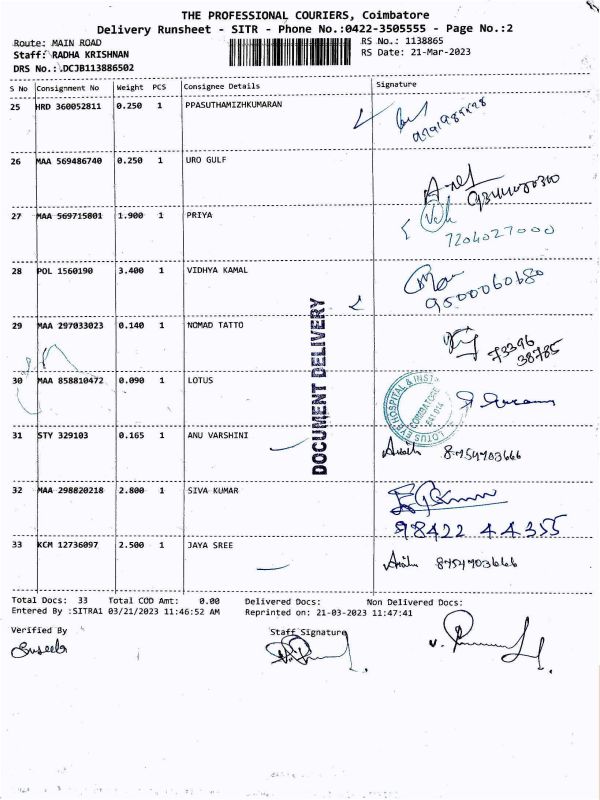 THE PROFESSIONAL COURIERS, Coimbatore
Delivery Runsheet - SITR - Phone No.:0422-3505555 - Page No.:2
Route: MAIN ROAD
RS No.: 1138865
Staff: RADHA KRISHNAN
RS Date: 21-Mar-2023
DRS No.:.DCJB113886502
S No Consignment No Weight PCS Consignee Details Signature
25 HRD 360052811 0.250 1 PPASUTHAMIZHKUMARAN
26 MAA 569486740 0.250 1 URO GULF
27 MAA 569715801 1.900 1 PRIYA
7204027000
28 POL 1560190 3.400 1 VIDHYA KAMAL
9500060680
29 MAA 297033023 0.140 1 NOMAD TATTO
73396
38785
30 MAA 858810472 0.090 1 LOTUS
LOTUS EYE HOSPITAL & INST
COIMBATORE
641 014
31 STY 329103 0.165 1 ANU VARSHINI
8754703666
32 MAA 298820218 2.800 1 SIVA KUMAR
98422 44355
33 KCM 12736097 2.500 1 JAYA SREE
8754703666
DOCUMENT DELIVERY
Total Docs: 33 Total COD Amt: 0.00 Delivered Docs: Non Delivered Docs:
Entered By :SITRA1 03/21/2023 11:46:52 AM Reprinted on: 21-03-2023 11:47:41
Verified By Staff Signature